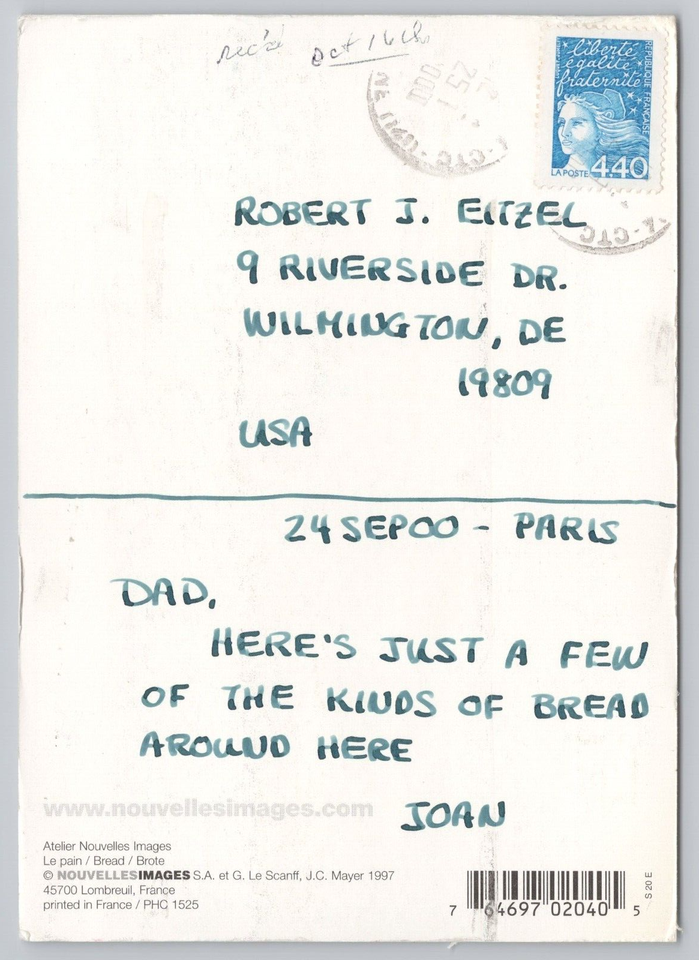 rec'd Oct 16
liberté
égalité
fraternité
RÉPUBLIQUE FRANÇAISE
LA POSTE 4,40
ROBERT J. EITZEL
9 RIVERSIDE DR.
WILMINGTON, DE
19809
USA
24 SEP 00 - PARIS
DAD,
HERE'S JUST A FEW
OF THE KINDS OF BREAD
AROUND HERE
JOAN
www.nouvellesimages.com
Atelier Nouvelles Images
Le pain / Bread / Brote
© NOUVELLESIMAGES S.A. et G. Le Scanff, J.C. Mayer 1997
45700 Lombreuil, France
printed in France / PHC 1525
7 64697 02040 5
S 20 E